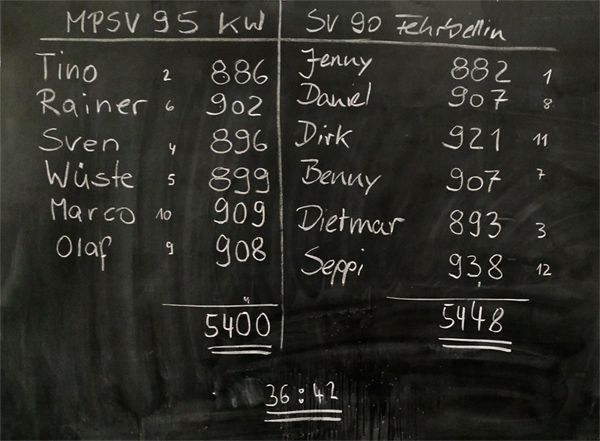 MPSV 95 KW SV 90 Fehrbellin
Tino 2 886 Jenny 882 1
Rainer 6 902 Daniel 907 8
Sven 4 896 Dirk 921 11
Wüste 5 899 Benny 907 7
Marco 10 909 Dietmar 893 3
Olaf 9 908 Seppi 938 12
5400 5448
36:42